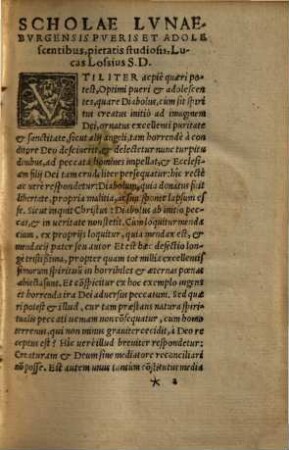 SCHOLAE LVNAE-
BVRGENSIS PVERIS ET ADOLE
scentibus, pietatis studiosis, Lu-
cas Lossius S.D.
VTILITER ac piè quæri po-
test, Optimi pueri & adolescen
tes, quare Diabolus, cum sit spiri
tus creatus initio ad imaginem
Dei, ornatus excellenti puritate
& sanctitate, sicut alij angeli, tam horrendè à con-
ditore Deo desciuerit, & delectetur nunc turpitu
dinibus, ad peccata homines impellat, & Ecclesi-
am filij Dei tam crudeliter persequatur: hîc rectè
ac verè respondetur: Diabolum, quia donatus fuit
libertate, propria malitia, ac sua sponte lapsum es-
se. Sicut inquit Christus: Diabolus ab initio pec-
cat, & in veritate non stetit. Cum loquitur menda
cium, ex proprijs loquitur, quia mendax est, &
mendacij pater seu autor. Et est hæc defectio lon-
gè tristissima, propter quam tot millia excellentis
simorum spirituũ in horribiles & æternas pœnas
abiecta sunt. Et cõspicitur ex hoc exemplo ingens
et horrenda ira Dei aduersus peccatum. Sed quæ
ri potest & illud, cur tam præstans natura spiri-
tualis peccati ueniam non cõsequatur, cum homo
terrenus, qui non minus grauiter cecidit, à Deo re
ceptus est? Hîc verè illud breuiter respondetur:
Creaturam & Deum sine mediatore reconciliari
nõ posse. Est autem unus tantùm cõstitutus media
* 2